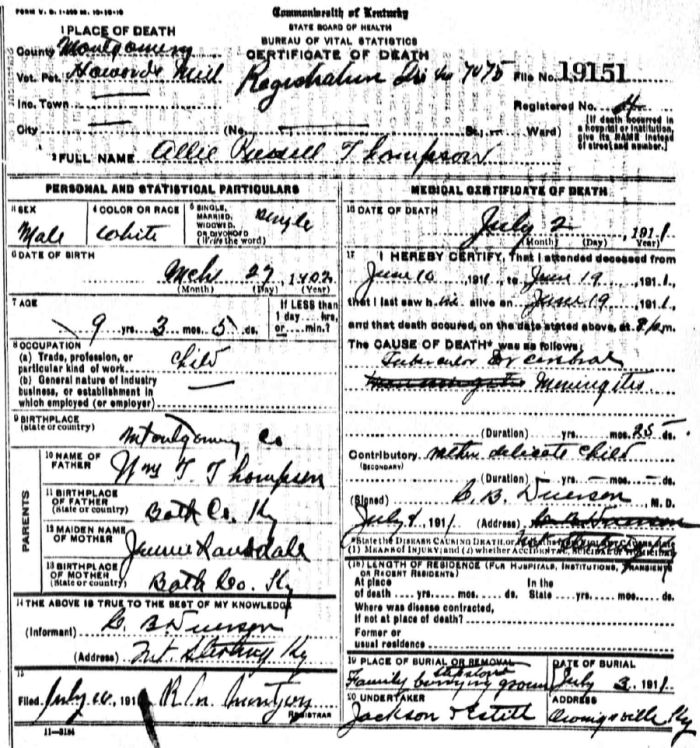 FORM V. S. 1-
Commonwealth of Kentucky
STATE BOARD OF HEALTH
BUREAU OF VITAL STATISTICS
CERTIFICATE OF DEATH
1 PLACE OF DEATH
County Montgomery
Vot. Pct. Howards Mill Registration Dis No 7075 File No. 19151
Inc. Town Registered No. 4
City (No. St.; Ward)
[If death occurred in a hospital or institution, give its NAME instead of street and number.]
2 FULL NAME Allie Russell Thompson
PERSONAL AND STATISTICAL PARTICULARS
3 SEX
Male
4 COLOR OR RACE
White
5 SINGLE, MARRIED, WIDOWED, OR DIVORCED (Write the word)
Single
6 DATE OF BIRTH
Mch 27, 1902
(Month) (Day) (Year)
7 AGE
9 yrs. 3 mos. 5 ds.
If LESS than 1 day .... hrs, or .... min.?
8 OCCUPATION
(a) Trade, profession, or particular kind of work Child
(b) General nature of industry business, or establishment in which employed (or employer)
9 BIRTHPLACE
(state or country)
Montgomery Co
PARENTS
10 NAME OF FATHER
Wm T Thompson
11 BIRTHPLACE OF FATHER
(State or country)
Bath Co. Ky
12 MAIDEN NAME OF MOTHER
Jennie Ransdale
13 BIRTHPLACE OF MOTHER
(State or country)
Bath Co. Ky
14 THE ABOVE IS TRUE TO THE BEST OF MY KNOWLEDGE
(Informant) C. B. Duerson
(Address) Mt Sterling Ky
15
Filed July 10, 191 R. L. REGISTRAR
11-3184
MEDICAL CERTIFICATE OF DEATH
16 DATE OF DEATH
July 2, 1911
(Month) (Day) (Year)
17 I HEREBY CERTIFY, That I attended deceased from
June 10 1911, to June 19 1911,
that I last saw h im alive on June 19 1911,
and that death occured, on the date stated above, at 8 m.
The CAUSE OF DEATH* was as follows:
Tubercular or cerebral
Meningitis
(Duration) yrs. mos. 25 ds.
Contributory delicate child
(SECONDARY)
(Duration) yrs. mos. ds.
(Signed) C. B. Duerson M. D.
July 4, 1911 (Address)
*State the DISEASE CAUSING DEATH, or,
(1) MEANS OF INJURY; and (2) whether ACCIDENTAL, SUICIDAL or HOMICIDAL
(18) LENGTH OF RESIDENCE (FOR HOSPITALS, INSTITUTIONS, TRANSIENTS OR RECENT RESIDENTS)
At place of death .... yrs. .... mos. .... ds. In the State .... yrs. .... mos. .... ds.
Where was disease contracted,
If not at place of death?
Former or
usual residence
19 PLACE OF BURIAL OR REMOVAL
Family burying ground
DATE OF BURIAL
July 3, 1911
20 UNDERTAKER
Jackson & Estill
ADDRESS
Owingsville Ky